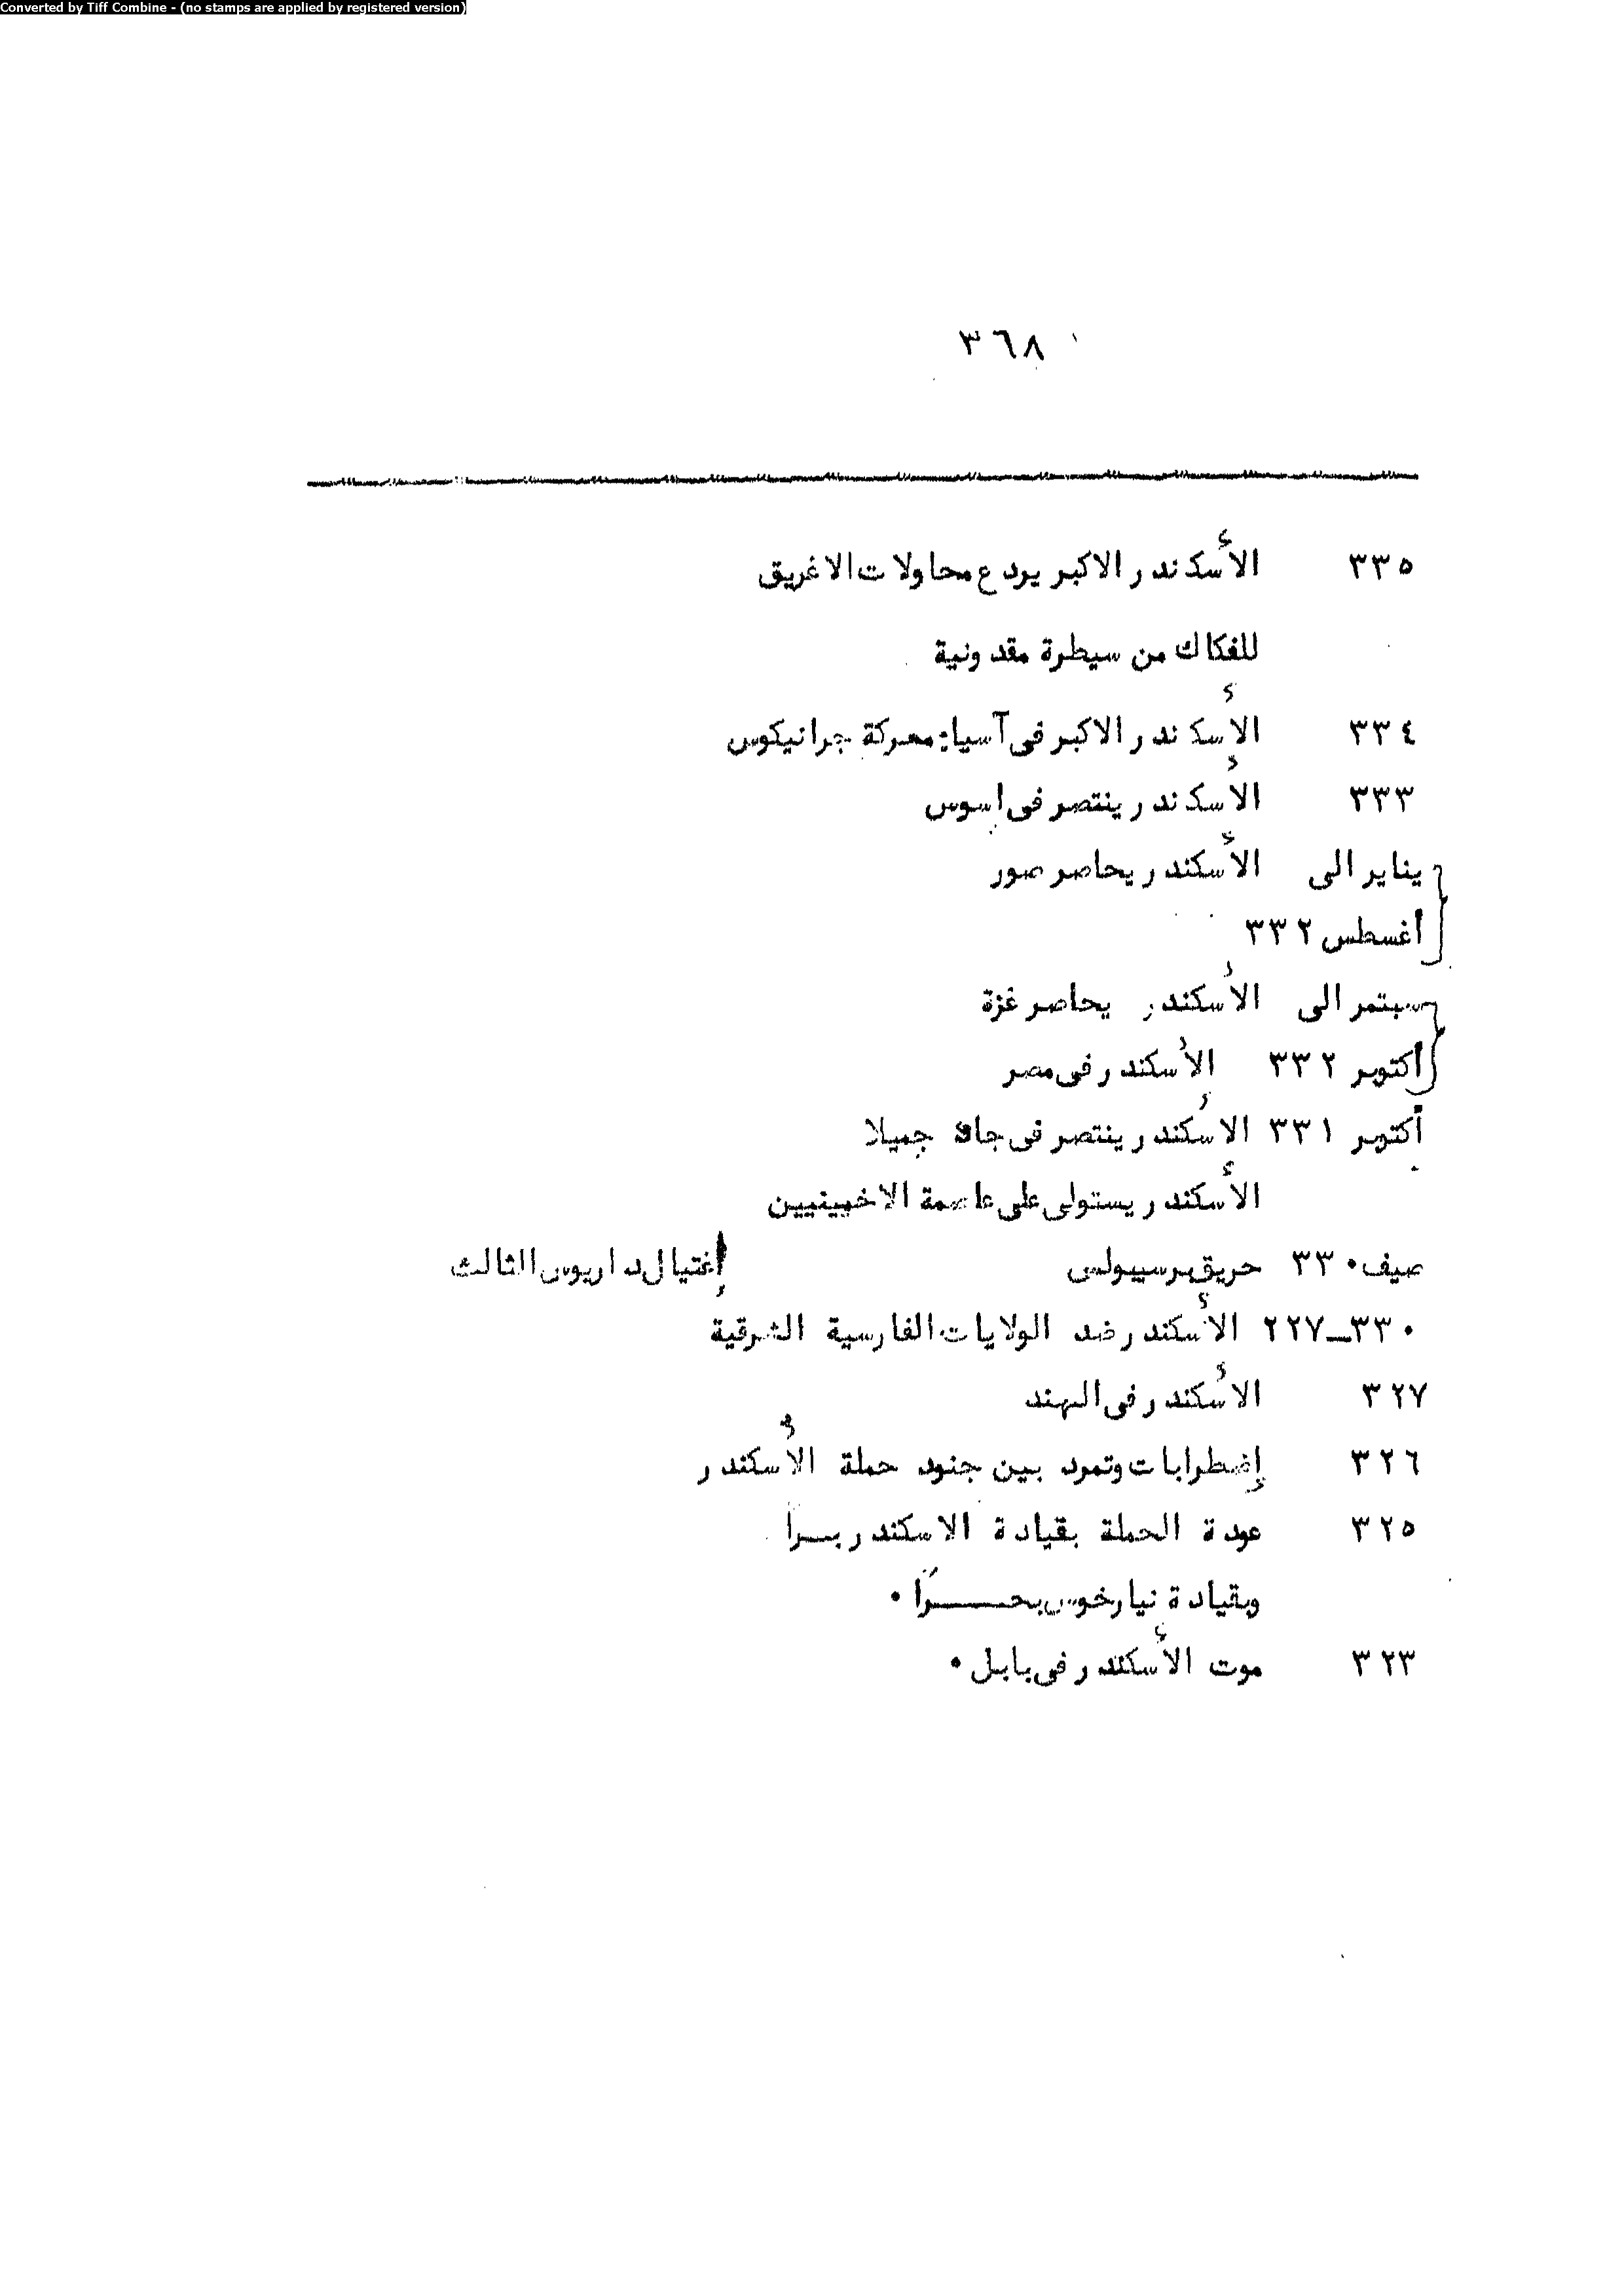 Converted by Tiff Combine - (no stamps are applied by registered version)
٣٦٨
٣٣٥ الأسكندر الاكبر يردع محاولات الاغريق
للفكاك من سيطرة مقدونية
٣٣٤ الأسكندر الاكبر فى آسيا: معركة جرانيكوس
٣٣٣ الأسكندر ينتصر فى اسوس
يناير الى الأسكندر يحاصر صور
أغسطس ٣٣٢
سبتمر الى الأسكندر يحاصر غزة
أكتوبر ٣٣٢ الأسكندر فى مصر
أكتوبر ٣٣١ الأسكندر ينتصر فى جميلا
الأسكندر يستولى على عاصمة الاخيينيين
صيف ٣٣٠ حريق برسيبولس إغتيال داريوس الثالث
٣٣٠ــ٢٢٧ الأسكندر ضد الولايات الفارسية الشرقية
٣٢٧ الأسكندر فى الهند
٣٢٦ إضطرابات وتمرد بين جنود حملة الأسكندر
٣٢٥ عودة الحملة بقيادة الاسكندر بـــراً
وبقيادة نيارخوس بحـــــراً ٠
٣٢٣ موت الأسكندر فى بابل ٠